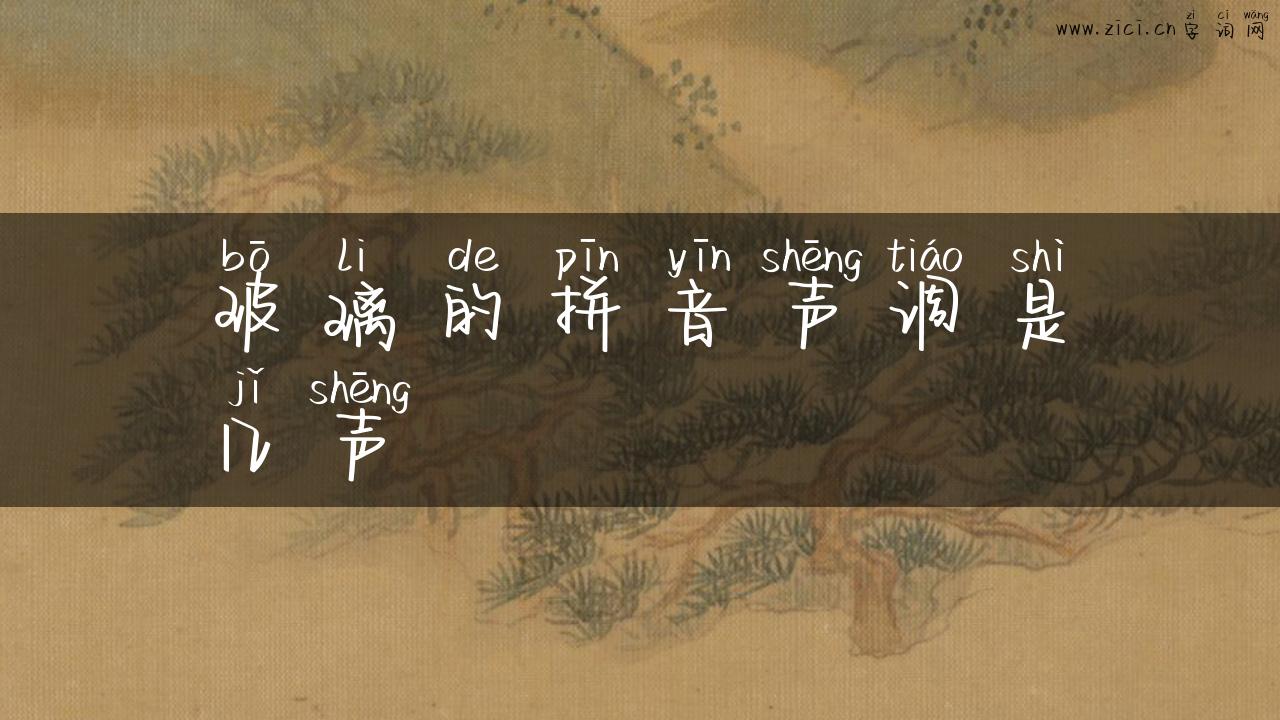 zì cí wǎng
www.zici.cn 字词网
bō li de pīn yīn shēng tiáo shì
玻璃的拼音声调是
jǐ shēng
几声